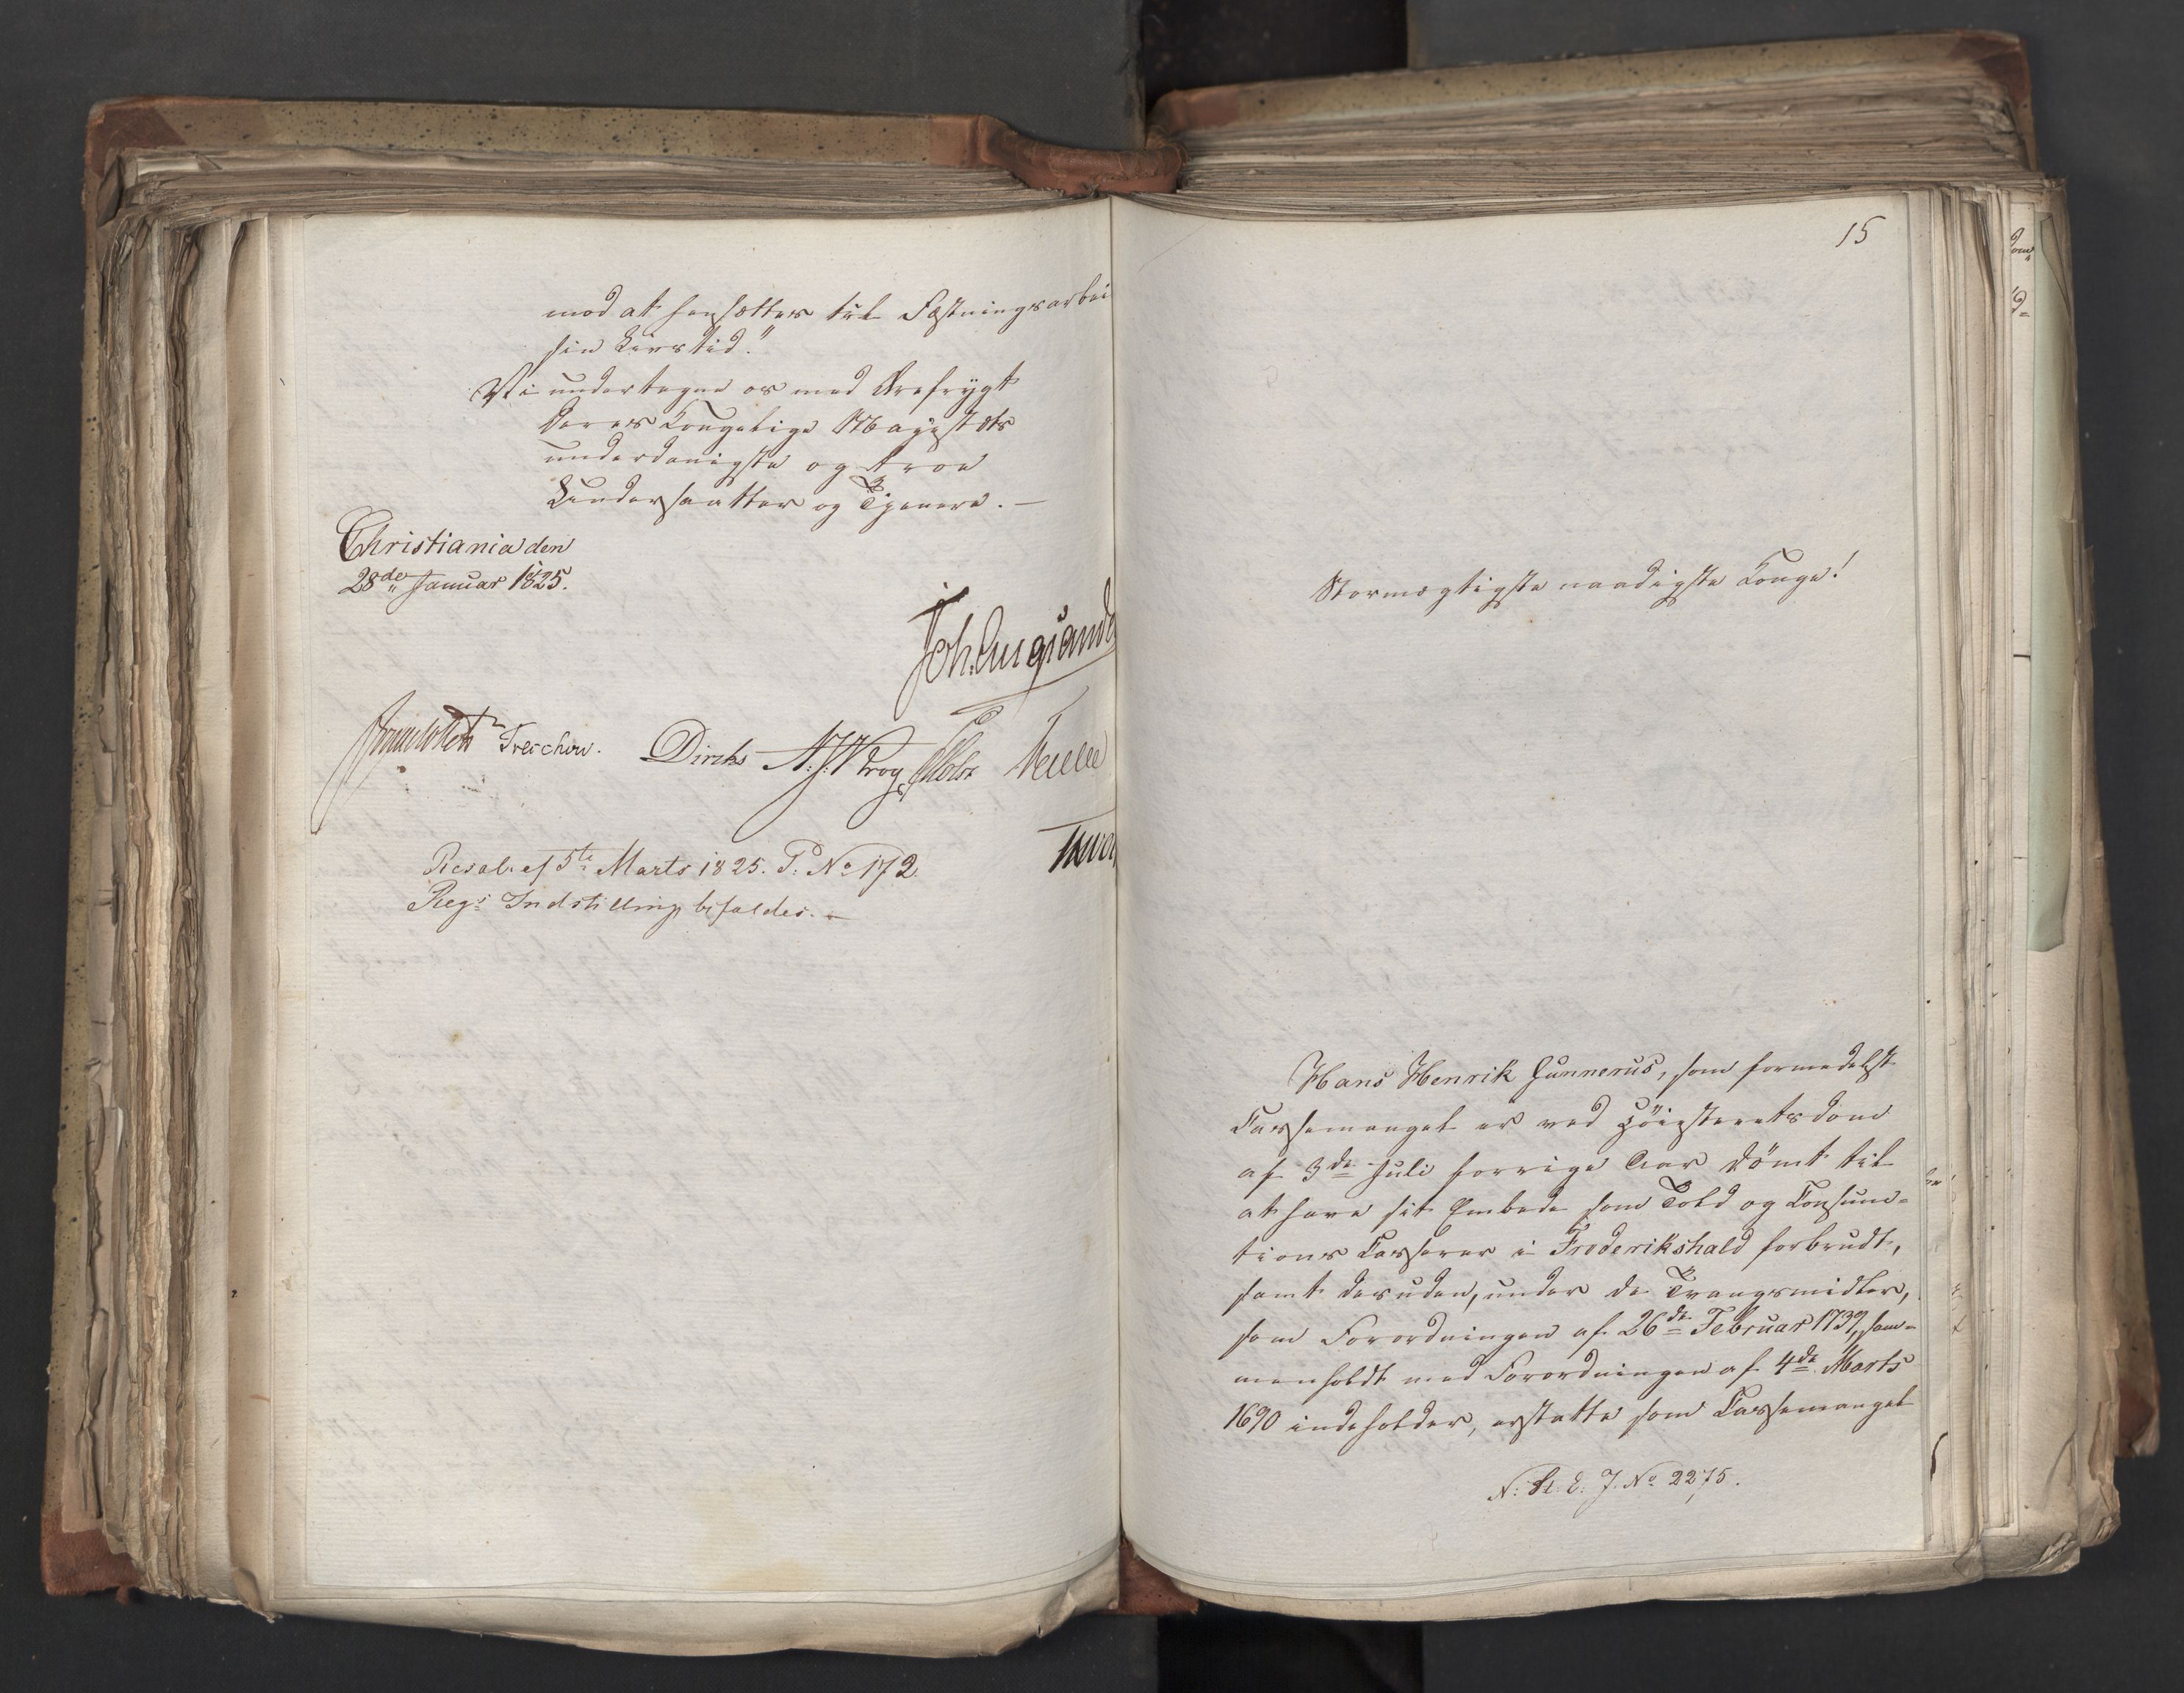 mod at hensættes til Fæstningsarbei
sin Livstid."
Vi undertegne os med Ærefrygt
Deres Kongelige Majestæts
underdanigste og troe
Undersaatter og Tjenere. —
Christiania den
28de Januar 1825.
Joh. Aug Sande
Sommerhielm Treschow. Diriks A: J: Krog Holst Motzfeldt
Resol. af 5te Marts 1825. P: No 172.
Regs Indstilling bifaldes. —
15
Stormægtigste naadigste Konge!
Hans Henrik Gunnerus, som formedelst
Cassemangel er ved Høiesteretsdom
af 3de Juli forrige Aar dømt til
at have sit Embede som Told og Consum=
tions Casserer i Frederikshald forbrudt,
samt desuden, under de Tvangsmidler,
som Forordningen af 26de Februar 1739, sam=
menholdt med Forordningen af 4de Marts
1690 indeholder, erstatte som Cassemangel
N: St: E: J. No 2275.